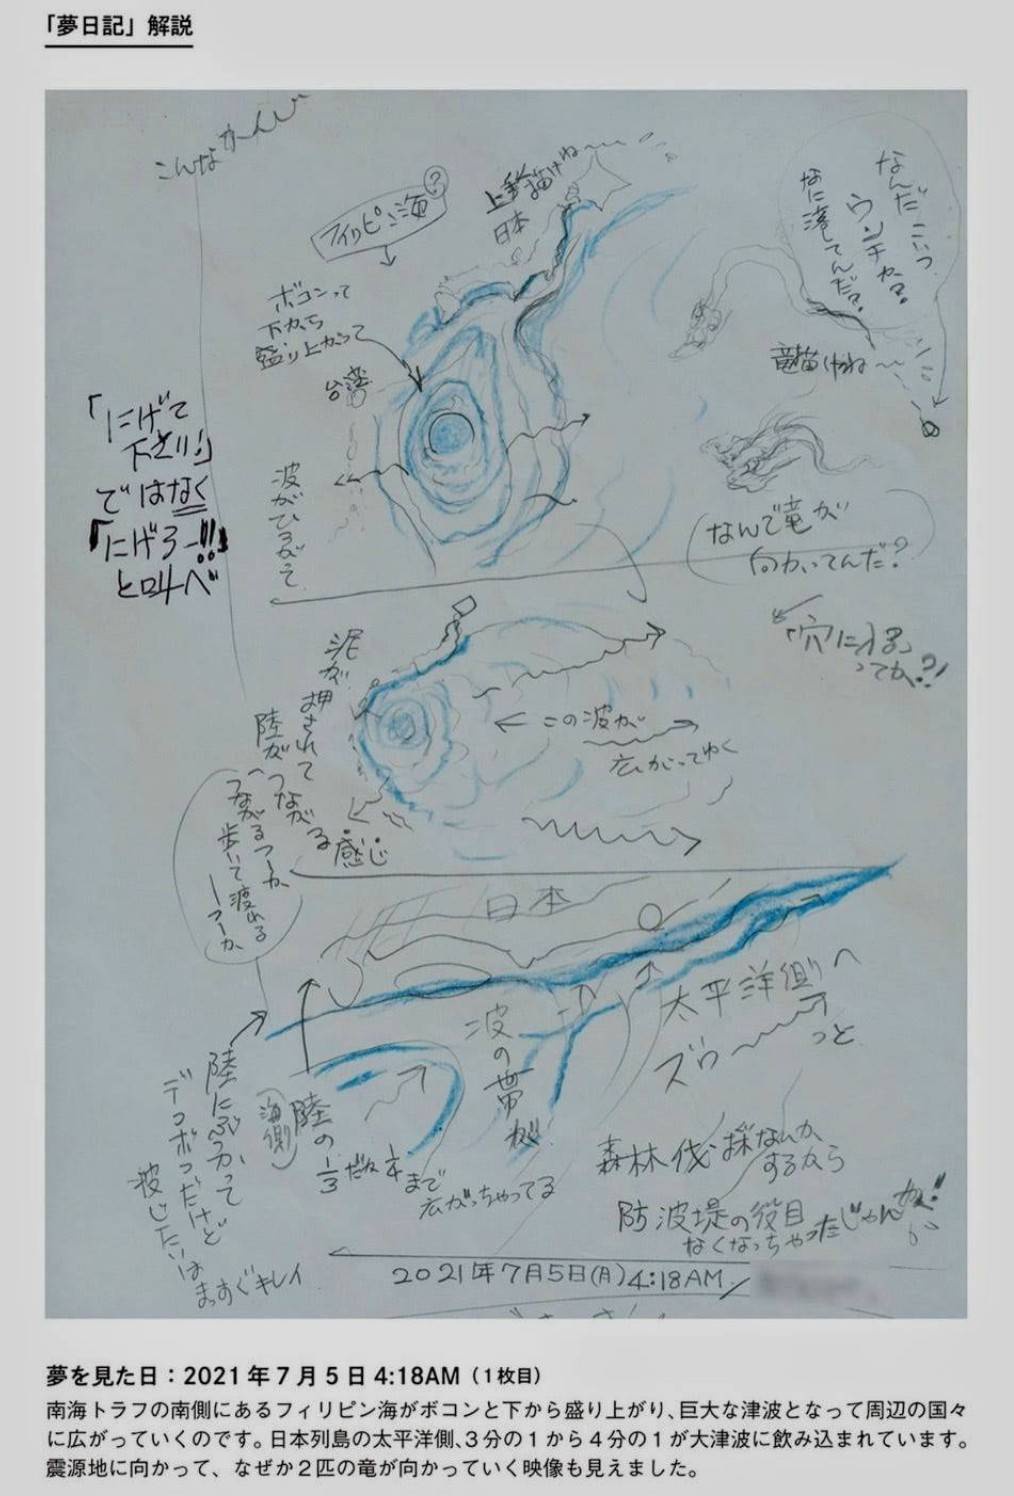 「夢日記」解説
こんなかんじ
フィリピン海?
上手く描けね〜
日本
なんだこいつ
ウンチか?
なに落てんだ?
ボコンって
下から
盛り上がって
台湾
竜描けね〜
「にげて
下さい!」
ではなく
「にげろー!!」
と叫べ
波がひろがって
なんで竜が
向かってんだ?
「穴に入る」
ってか?!
泥が
押されて
陸が
つながる
感じ
つながるつーか
歩いて渡れる
つーか
この波が
広がってゆく
日本
太平洋側へ
ズウ〜っと
波の帯が
陸にぶつかって
デコボコだけど
波じたいは
まっすぐキレイ
(海側)
陸の1/3だね 1/4まで
広がっちゃってる
森林伐採なんか
するから
防波堤の役目
なくなっちゃったじゃんか!
2021年7月5日(月)4:18AM
夢を見た日:2021年7月5日4:18AM(1枚目)
南海トラフの南側にあるフィリピン海がボコンと下から盛り上がり、巨大な津波となって周辺の国々
に広がっていくのです。日本列島の太平洋側、3分の1から4分の1が大津波に飲み込まれています。
震源地に向かって、なぜか2匹の竜が向かっていく映像も見えました。